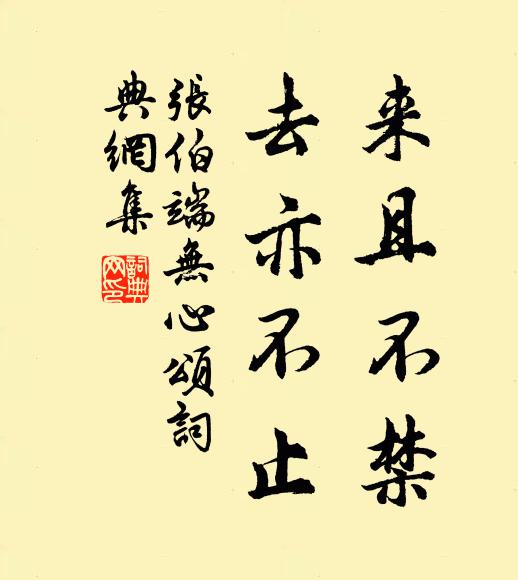 来且不禁
去亦不止
張伯端無心頌詞
典網集
詞典
网印